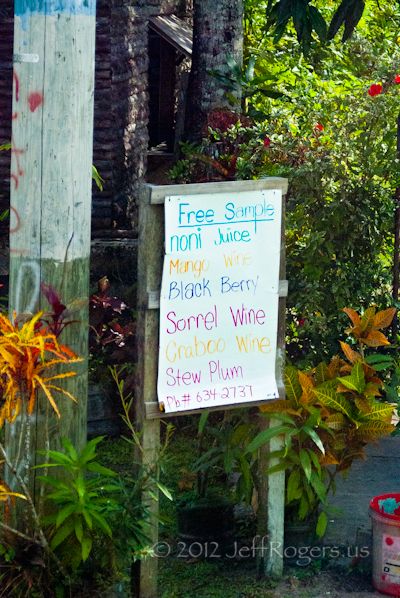 Free Sample
noni Juice
Mango Wine
Black Berry
Sorrel Wine
Craboo Wine
Stew Plum
Ph# 634-2737
© 2012 JeffRogers.us